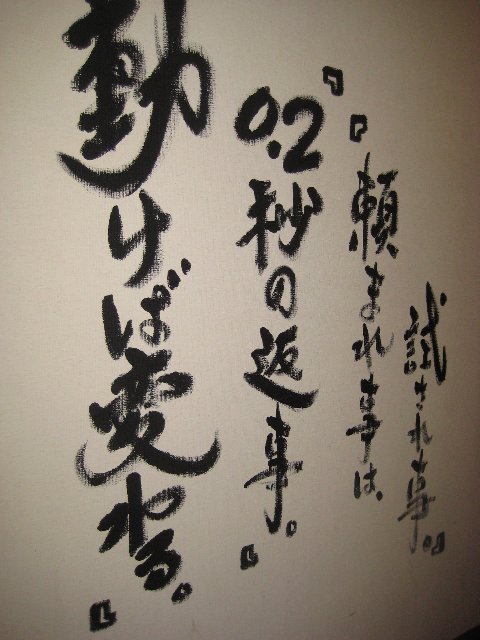 『頼まれ事は、
試され事。』
『0.2秒の返事。』
動けば変わる。』